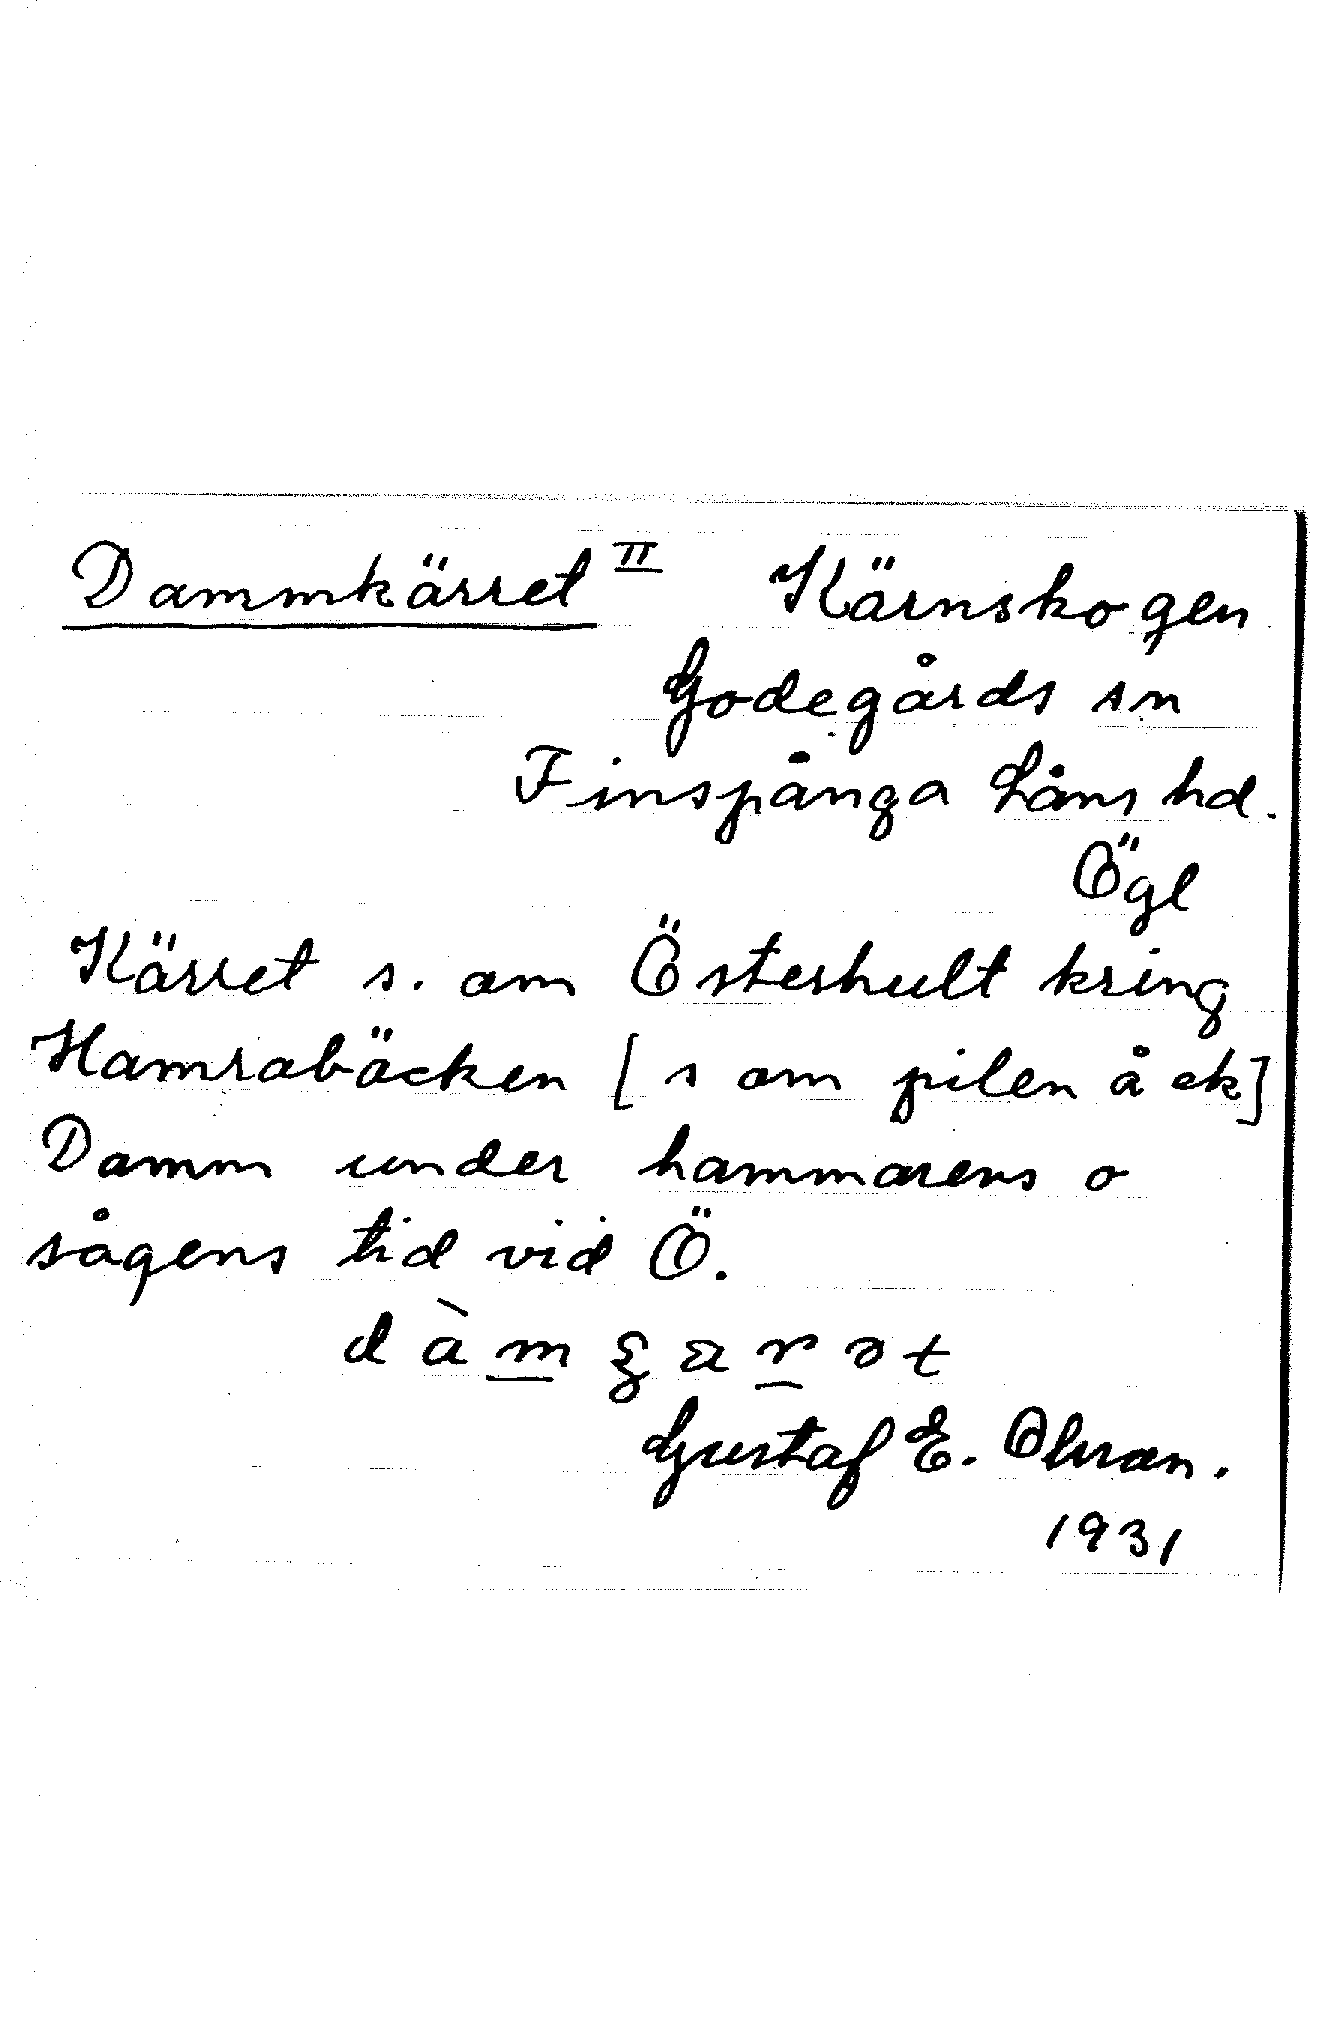 Dammkärret II Kärnskogen
Godegårds sn
Finspånga Läns hd.
Ögl
Kärret s. om Österhult kring
Hamrabäcken [s om pilen å ek]
Damm under hammarens o
sågens tid vid Ö.
Gustaf E.
1931